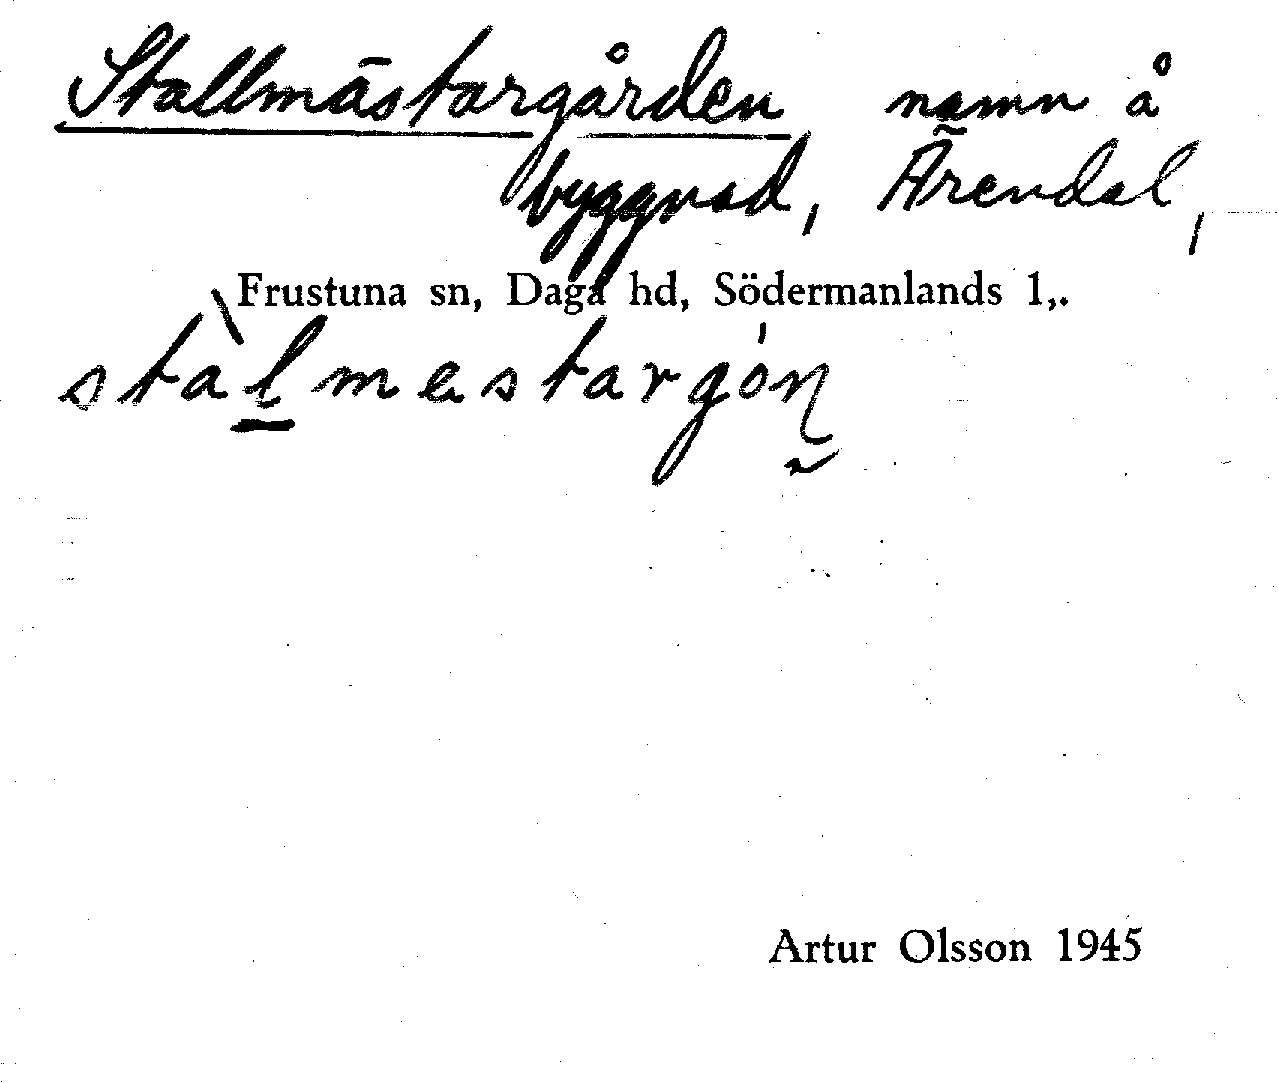 Stallmästargården, namn å
byggnad, Ärendal,
Frustuna sn, Daga hd, Södermanlands l,.
stàlmestargón
Artur Olsson 1945